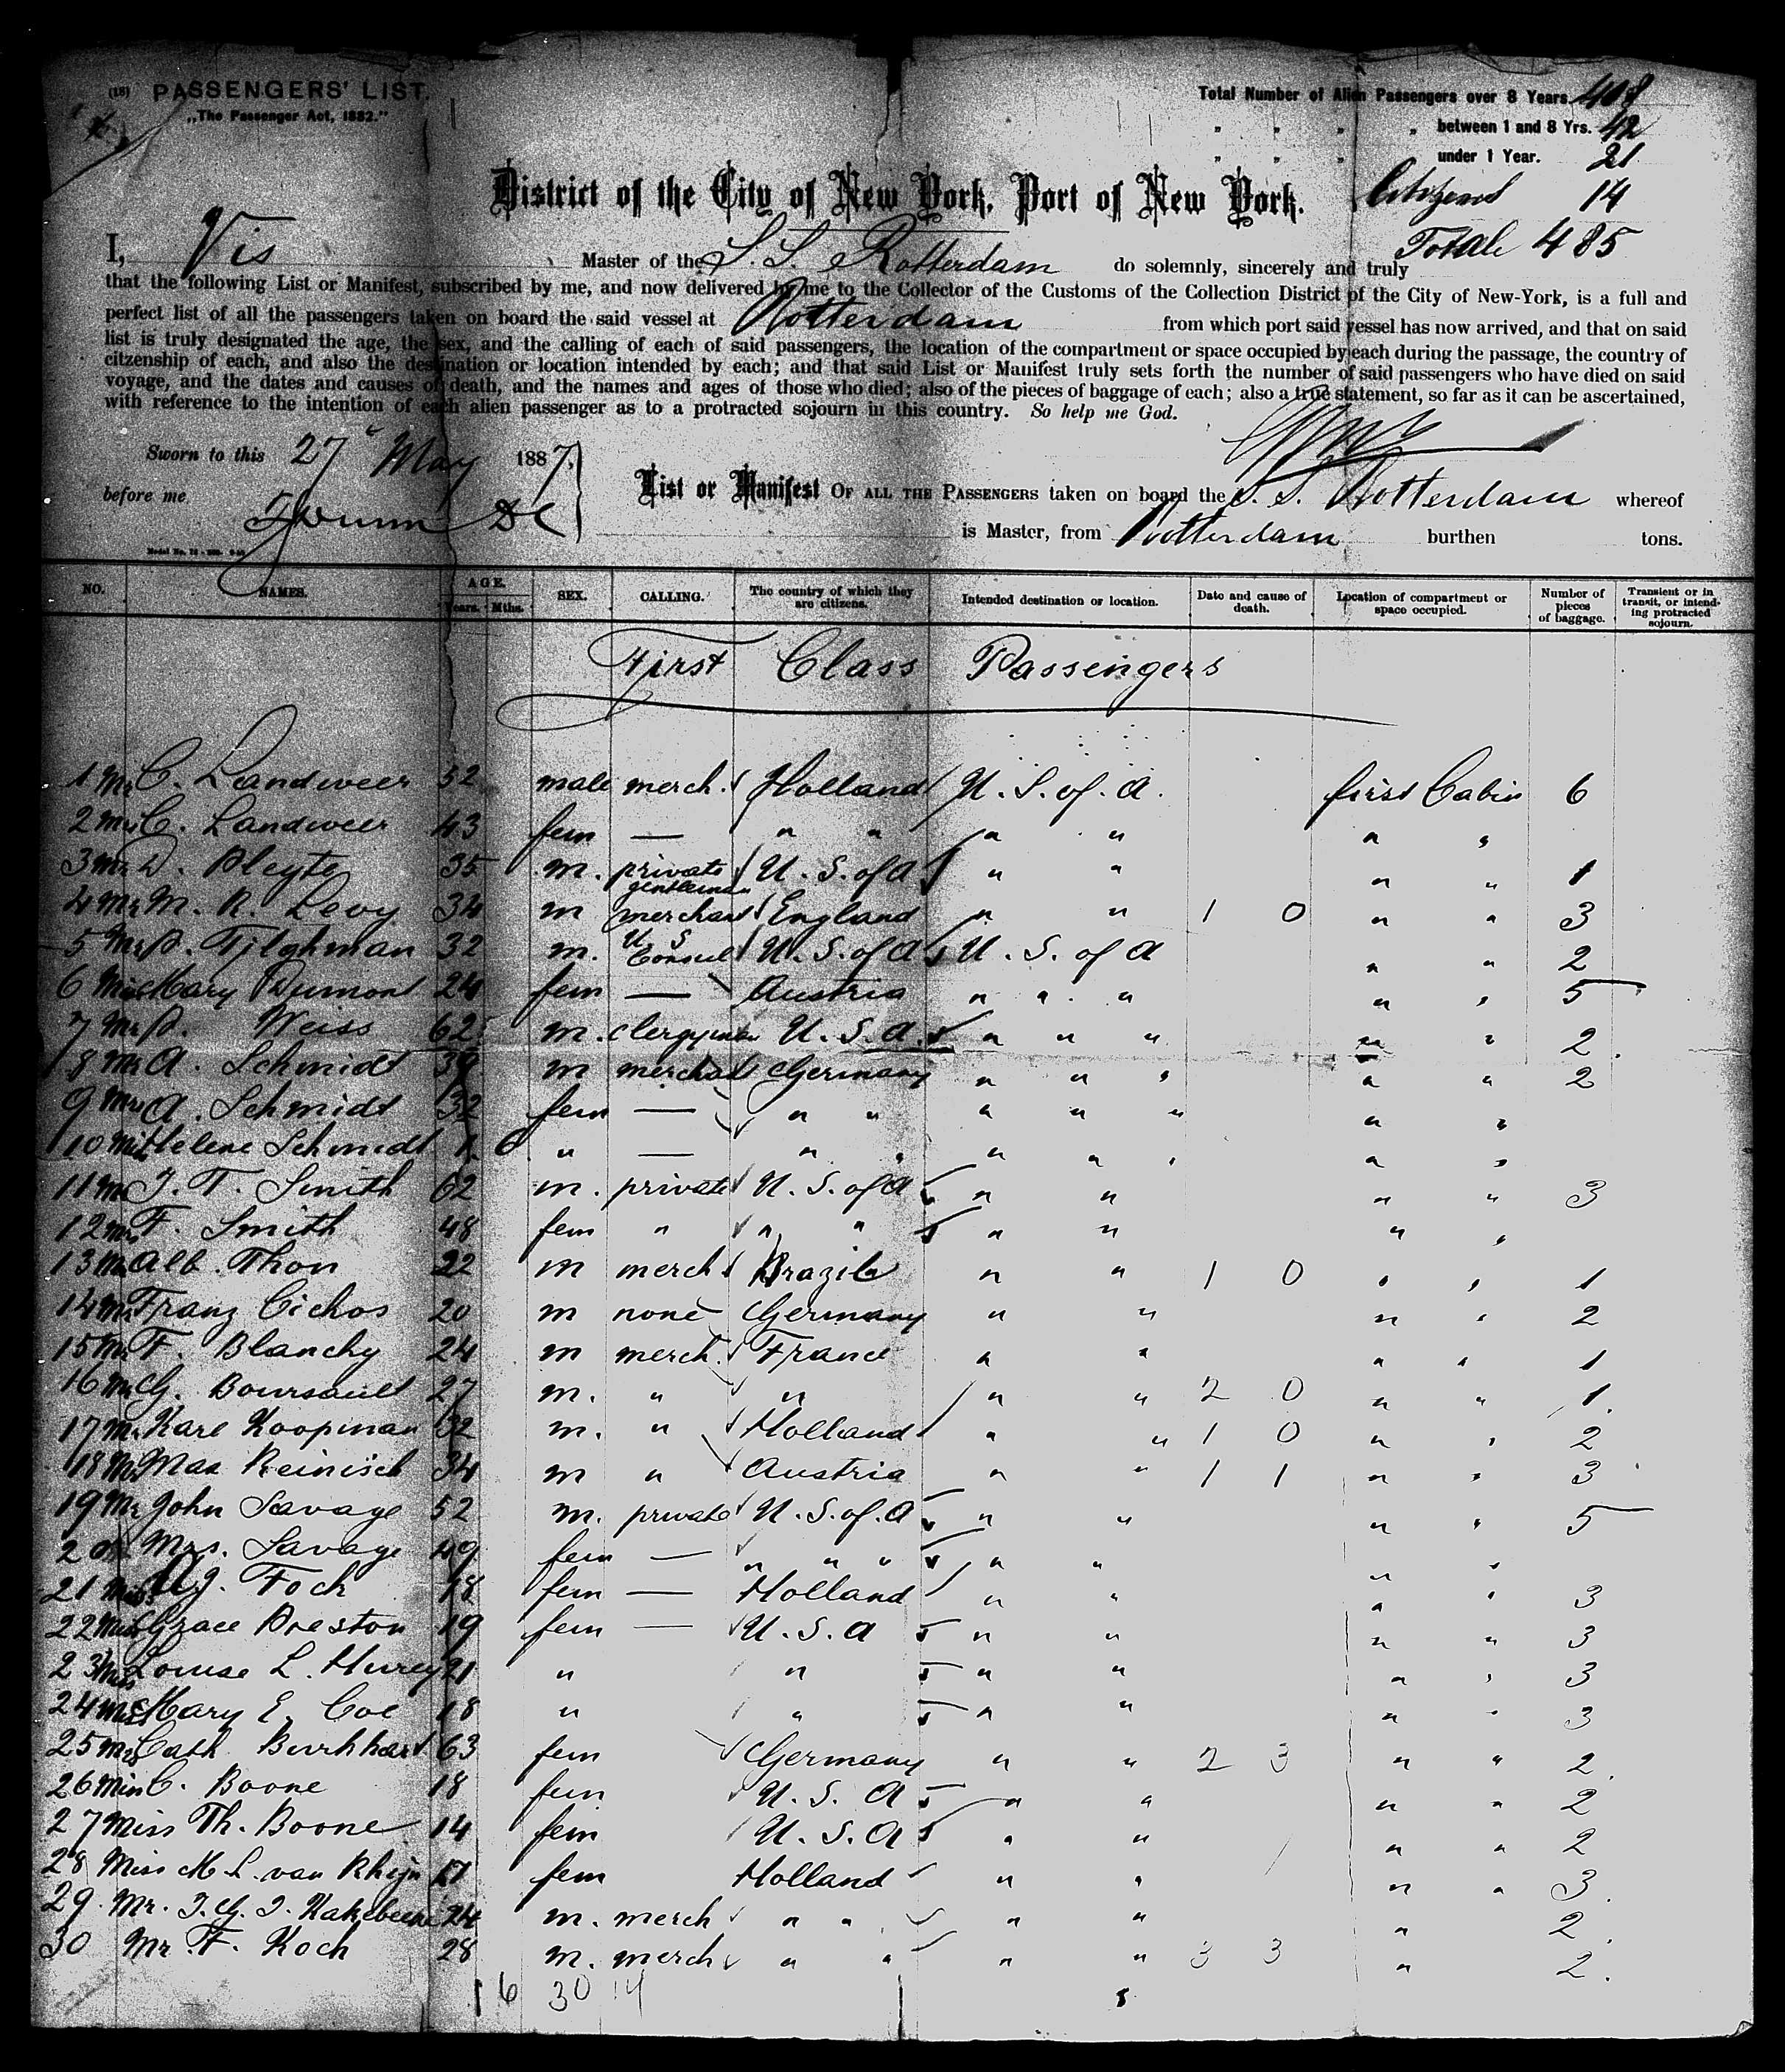 (18) PASSENGERS' LIST.
„The Passenger Act, 1882."
Total Number of Alien Passengers over 8 Years. 408
" " " " between 1 and 8 Yrs. 42
" " " under 1 Year. 21
Citizens 14
Totale 485
District of the City of New York, Port of New York.
I, Vis Master of the S. S. Rotterdam do solemnly, sincerely and truly
that the following List or Manifest, subscribed by me, and now delivered by me to the Collector of the Customs of the Collection District of the City of New-York, is a full and
perfect list of all the passengers taken on board the said vessel at Rotterdam from which port said vessel has now arrived, and that on said
list is truly designated the age, the sex, and the calling of each of said passengers, the location of the compartment or space occupied by each during the passage, the country of
citzenship of each, and also the destination or location intended by each; and that said List or Manifest truly sets forth the number of said passengers who have died on said
voyage, and the dates and causes of death, and the names and ages of those who died; also of the pieces of baggage of each; also a true statement, so far as it can be ascertained,
with reference to the intention of each alien passenger as to a protracted sojourn in this country. So help me God.
Sworn to this 27 May 1887.
before me
List or Manifest OF ALL THE PASSENGERS taken on board the S. S. Rotterdam whereof
is Master, from Rotterdam burthen tons.
NO. NAMES. AGE. Years. Mths. SEX. CALLING. The country of which they are citizens. Intended destination or location. Date and cause of death. Location of compartment or space occupied. Number of pieces of baggage. Transient or in transit, or intending protracted sojourn.
First Class Passengers
1 Mr C. Landweer 52 male merch. Holland U. S. of. A. first Cabin 6
2 Mrs C. Landweer 43 fem — " " " " " "
3 Mr D. Pleyte 35 m. private gentleman U. S. of A " " " " 1
4 Mr M. R. Levy 34 m merchant England " " 1 0 " " 3
5 Mr Tilghman 32 m. U S Consul U. S. of A U. S. of A " " 2
6 Miss Mary Dumont 24 fem — Austria " " " " " 5
7 Mr Weiss 62 m. clergyman U. S. A. " " " " " 2
8 Mr A. Schmidt 39 m merchant Germany " " " " " 2
9 Mrs A. Schmidt 32 fem — " " " " " " "
10 Miss Helene Schmidt 1 6 " — " " " " " " "
11 Mr J. T. Smith 62 m. private U. S. of A " " " " 3
12 Mrs F. Smith 48 fem " " " " " " "
13 Mr Alb. Thon 22 m merch Brazil " " 1 0 " " 1
14 Mr Franz Cichos 20 m none Germany " " " " 2
15 Mr F. Blanchy 24 m merch. France " " " " 1
16 Mr G. Boursault 27 m. " " " " 2 0 " " 1.
17 Mr Karl Koopman 32 m. " Holland " " 1 0 " " 2
18 Mr Max Reinisch 34 m " Austria " " 1 1 " " 3
19 Mr John Savage 52 m. private U. S. of. A " " " " 5
20 Mrs. Savage 49 fem — " " " " " " "
21 Miss Foch 18 fem — Holland " " " " 3
22 Miss Grace Preston 19 fem — U. S. A " " " " 3
23 Miss Louise L. 21 " " " " " " 3
24 Miss Mary E. Coe 18 " " " " " " 3
25 Mrs Cath. Burkhart 63 fem Germany " " 2 3 " " 2.
26 Miss C. Boone 18 fem U. S. A " " " " 2
27 Miss Th. Boone 14 fem U. S. A " " " " 2
28 Miss M. L. van Rhijn 17 fem Holland " " " " 3.
29. Mr. J. G. J. 24 m. merch " " " " " 2.
30 Mr. F. Koch 28 m. merch " " " " 3 3 " 2.
1 6 30 14